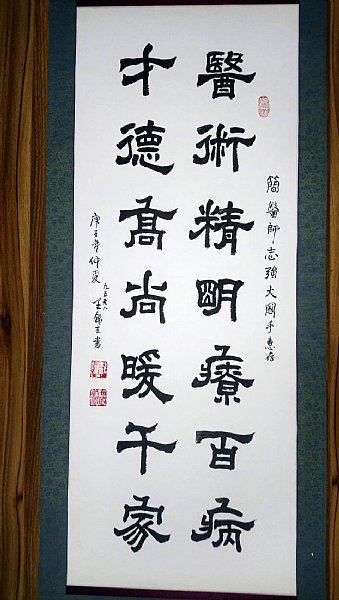 簡醫師志強大國手惠存
醫術精明療百病
才德高尚暖千家
庚子年仲夏